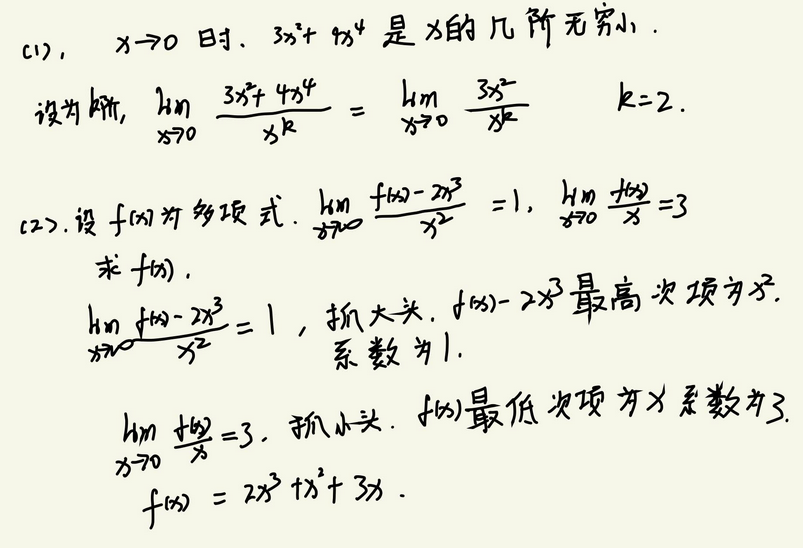 (1), x→0 时. 3x²+4x⁴ 是 x的 几 阶 无穷小.
设为k阶, lim_{x→0} (3x²+4x⁴)/x^k = lim_{x→0} 3x²/x^k k=2.
(2).设 f(x)为 多项式. lim_{x→∞} (f(x)-2x³)/x² =1, lim_{x→0} f(x)/x =3
求 f(x).
lim_{x→∞} (f(x)-2x³)/x² = 1, 抓大头. f(x)-2x³最高次项为x².
系数为1.
lim_{x→0} f(x)/x =3. 抓小头. f(x)最低次项为x 系数为3.
f(x) = 2x³+x²+3x.